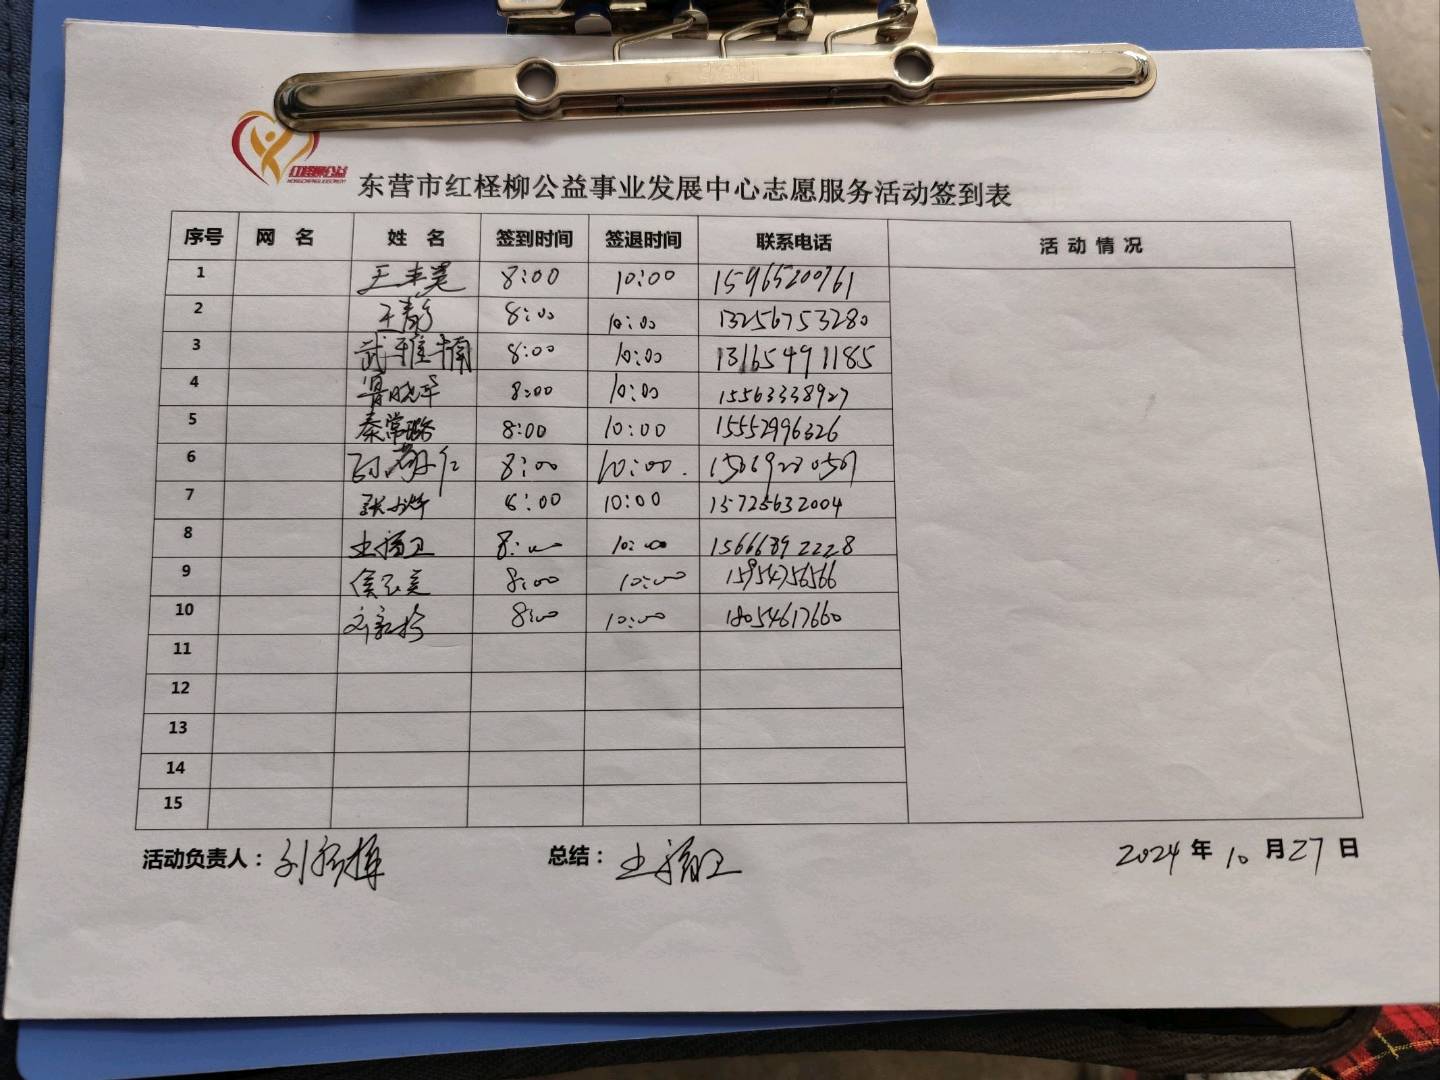 红柽柳公益
东营市红柽柳公益事业发展中心志愿服务活动签到表
序号 网 名 姓 名 签到时间 签退时间 联系电话 活动情况
1 8:00 10:00 15965200761
2 王静 8:00 10:00 13256753280
3 武雅楠 8:00 10:00 13165491185
4 8:00 10:00 15563338927
5 秦常璐 8:00 10:00 15552996326
6 8:00 10:00
7 8:00 10:00 15725632004
8 王福卫 8:00 10:00 15666892228
9 8:00 10:00 15954756566
10 8:00 10:00 18054617660
11
12
13
14
15
活动负责人: 总结: 王福卫 2024 年 10 月 27 日